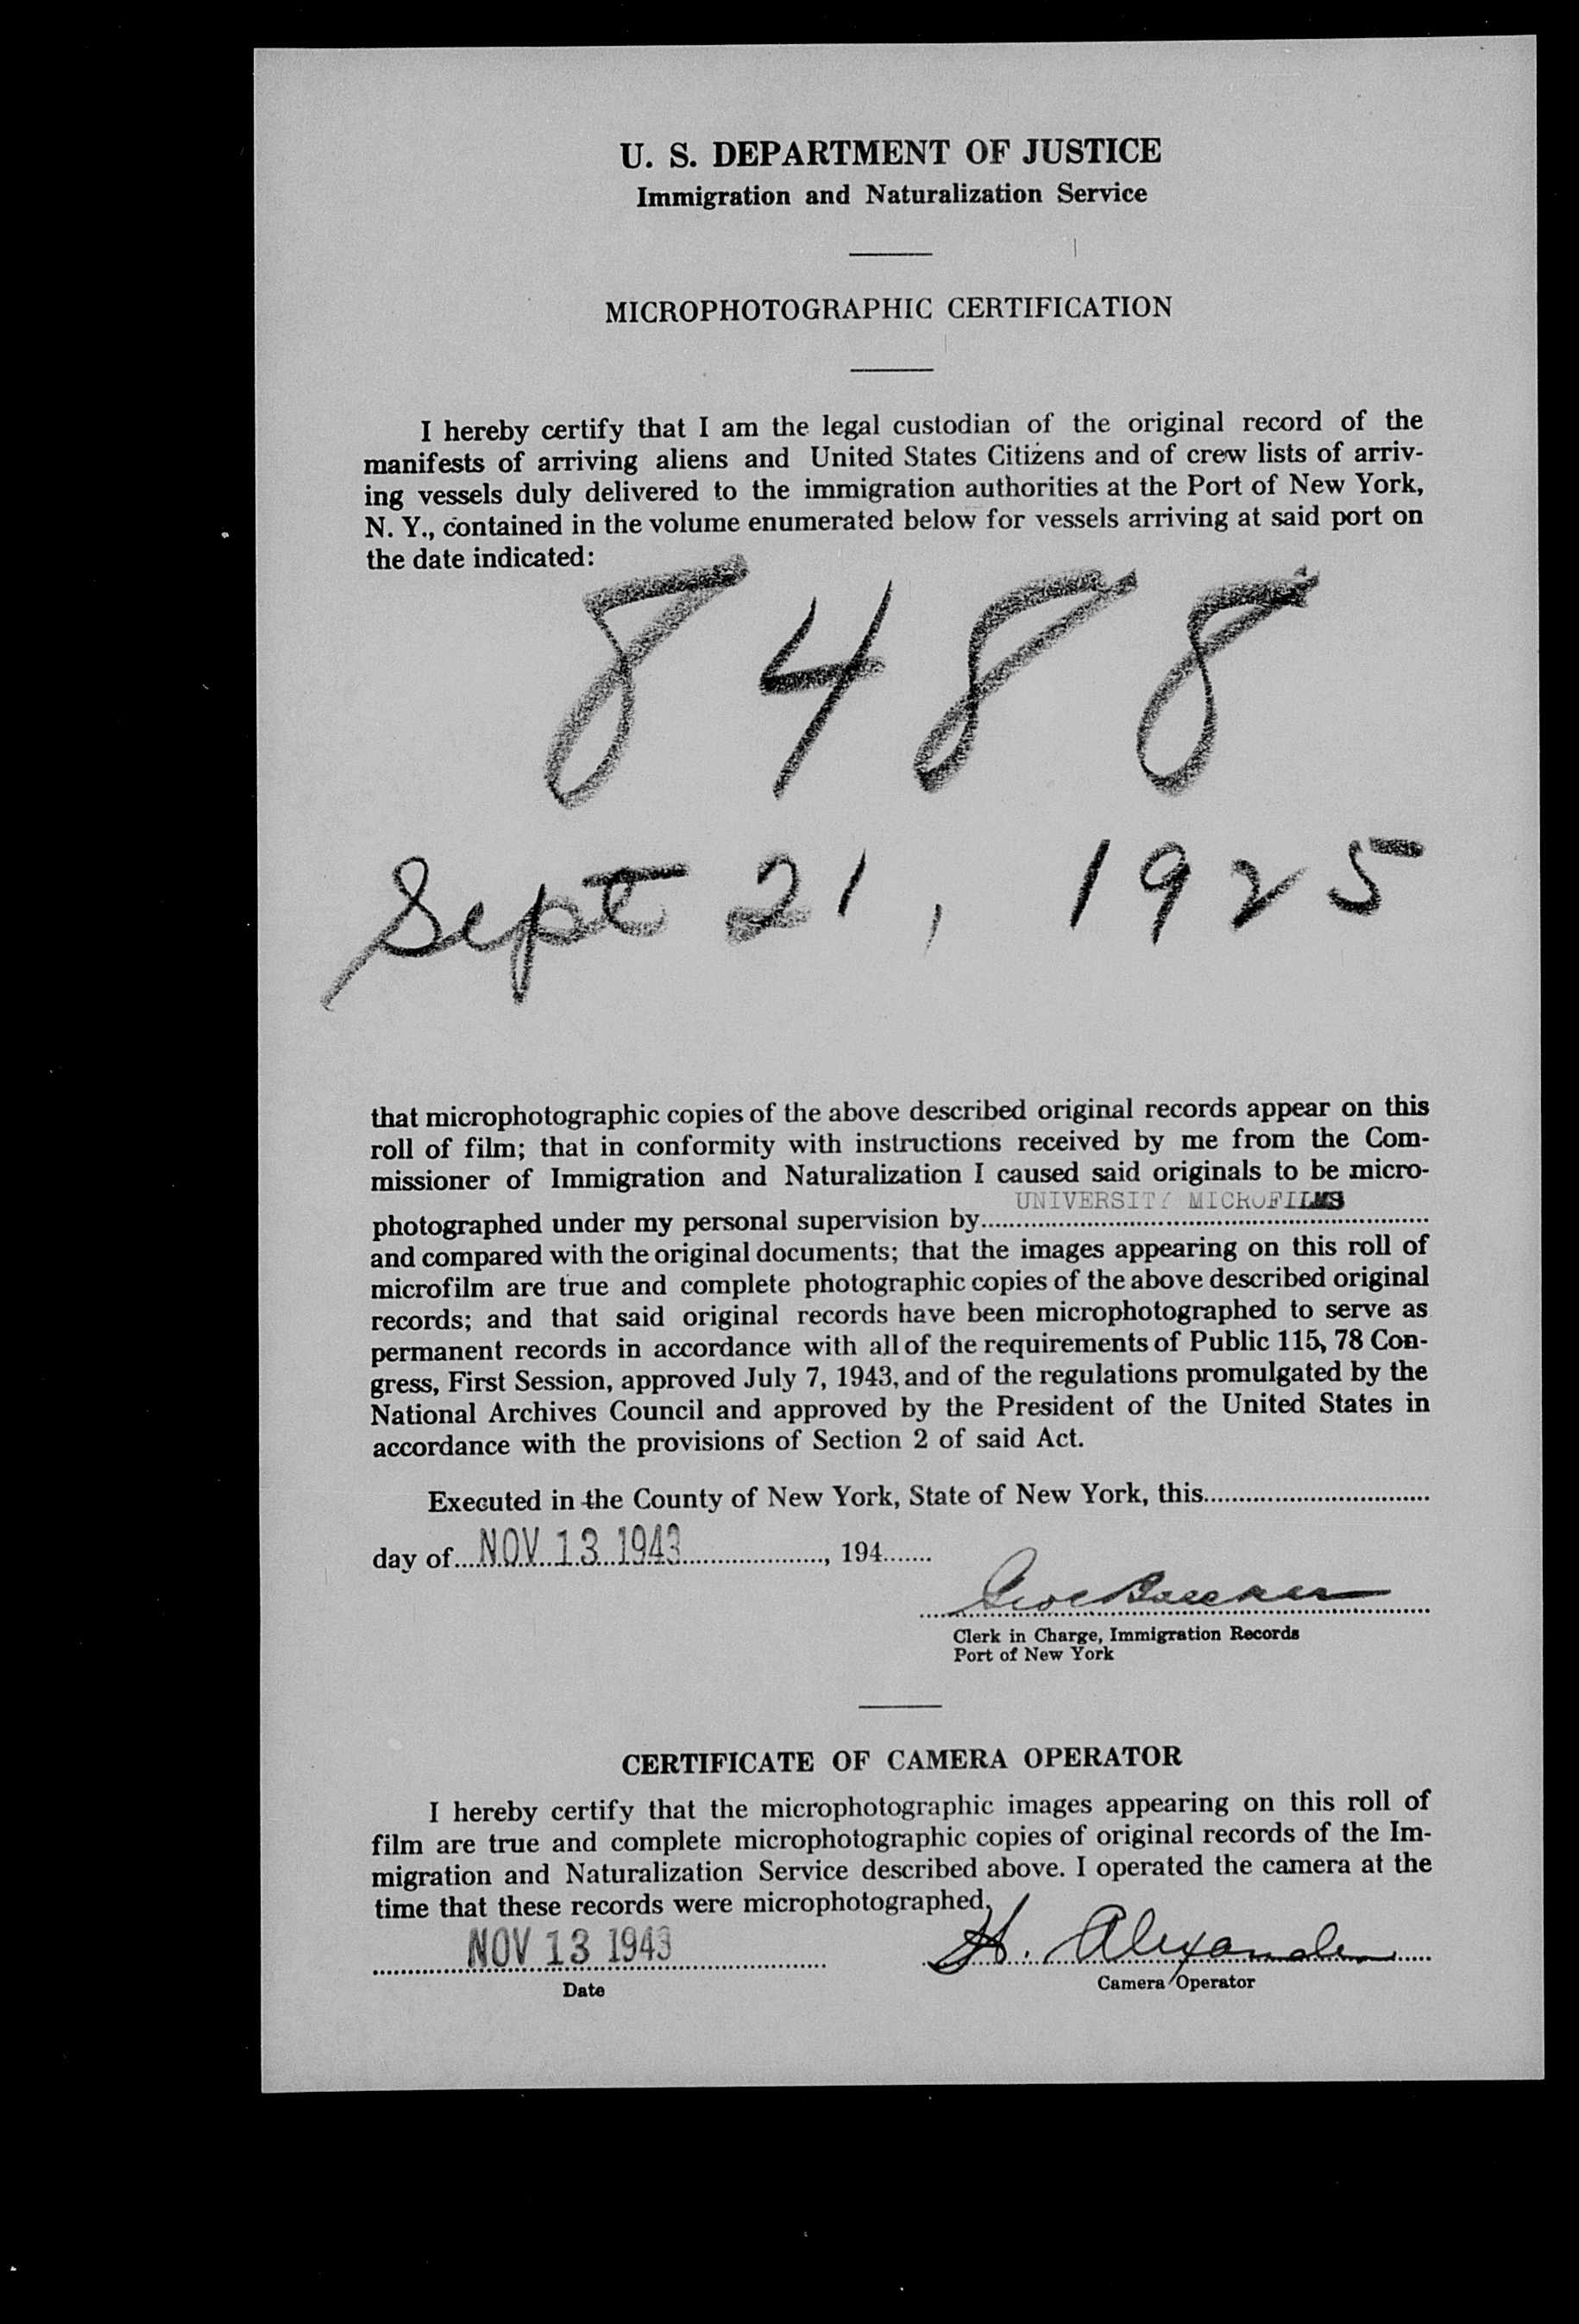 U. S. DEPARTMENT OF JUSTICE
Immigration and Naturalization Service
MICROPHOTOGRAPHIC CERTIFICATION
I hereby certify that I am the legal custodian of the original record of the
manifests of arriving aliens and United States Citizens and of crew lists of arriv-
ing vessels duly delivered to the immigration authorities at the Port of New York,
N. Y., contained in the volume enumerated below for vessels arriving at said port on
the date indicated:
8488
Sept 21, 1925
that microphotographic copies of the above described original records appear on this
roll of film; that in conformity with instructions received by me from the Com-
missioner of Immigration and Naturalization I caused said originals to be micro-
photographed under my personal supervision by UNIVERSITY MICROFILMS
and compared with the original documents; that the images appearing on this roll of
microfilm are true and complete photographic copies of the above described original
records; and that said original records have been microphotographed to serve as
permanent records in accordance with all of the requirements of Public 115, 78 Con-
gress, First Session, approved July 7, 1943, and of the regulations promulgated by the
National Archives Council and approved by the President of the United States in
accordance with the provisions of Section 2 of said Act.
Executed in the County of New York, State of New York, this
day of NOV 13 1943, 194
Clerk in Charge, Immigration Records
Port of New York
CERTIFICATE OF CAMERA OPERATOR
I hereby certify that the microphotographic images appearing on this roll of
film are true and complete microphotographic copies of original records of the Im-
migration and Naturalization Service described above. I operated the camera at the
time that these records were microphotographed.
NOV 13 1943 H. Alexander
Date Camera Operator